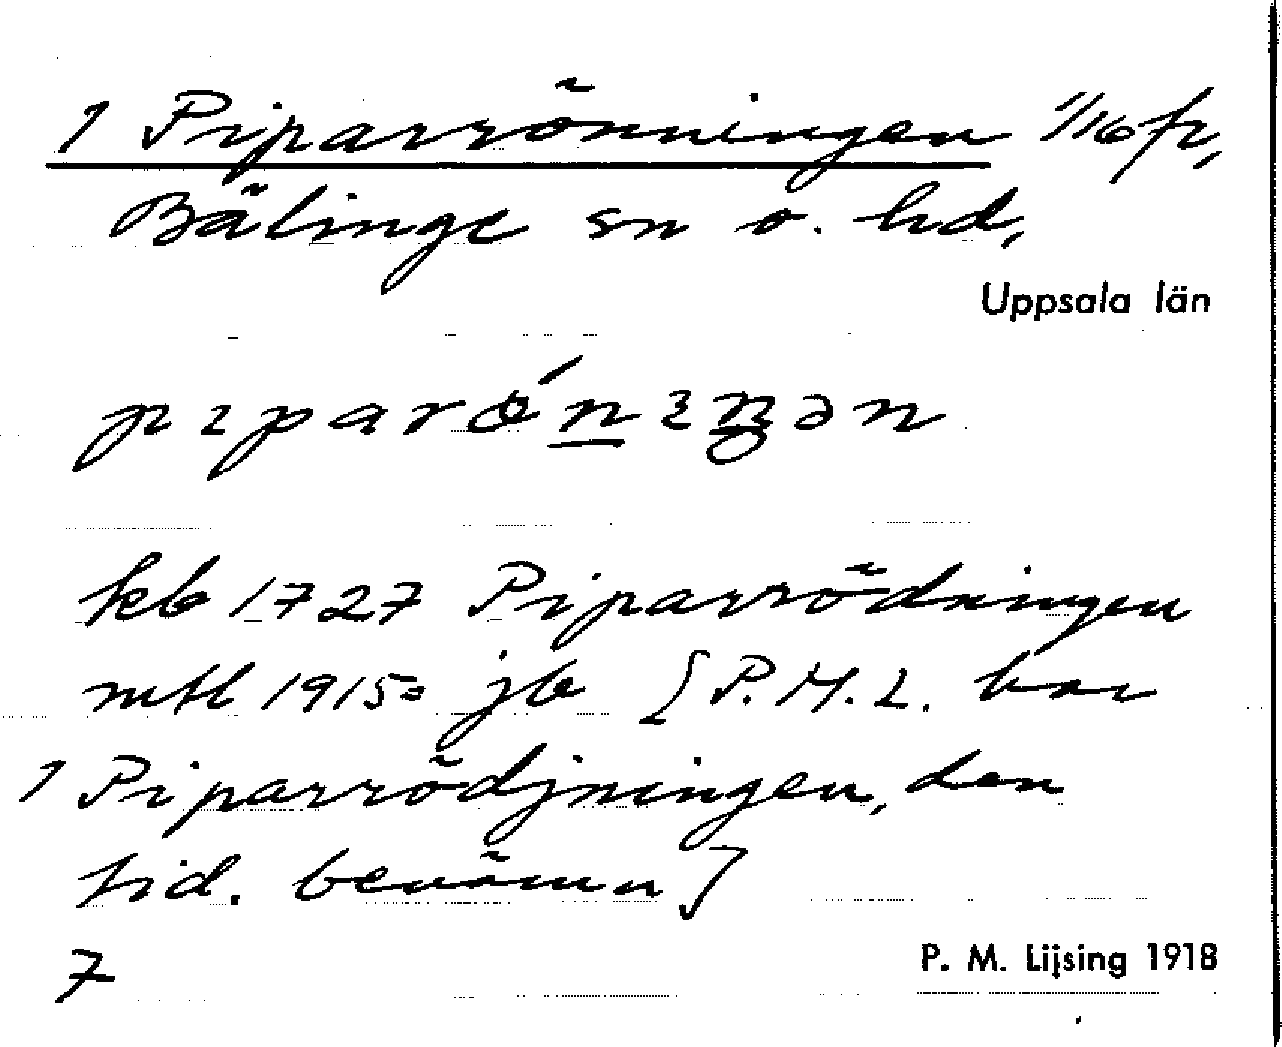 1 Piparrönningen 1/16 fr,
Bälinge sn o. hd,
Uppsala län
piparónıŋən
kb 1727 Piparrödningen
mtl 1915= jb [P.M.L. har
1 Piparrödjningen, den
tid. benämn]
7
P. M. Lijsing 1918